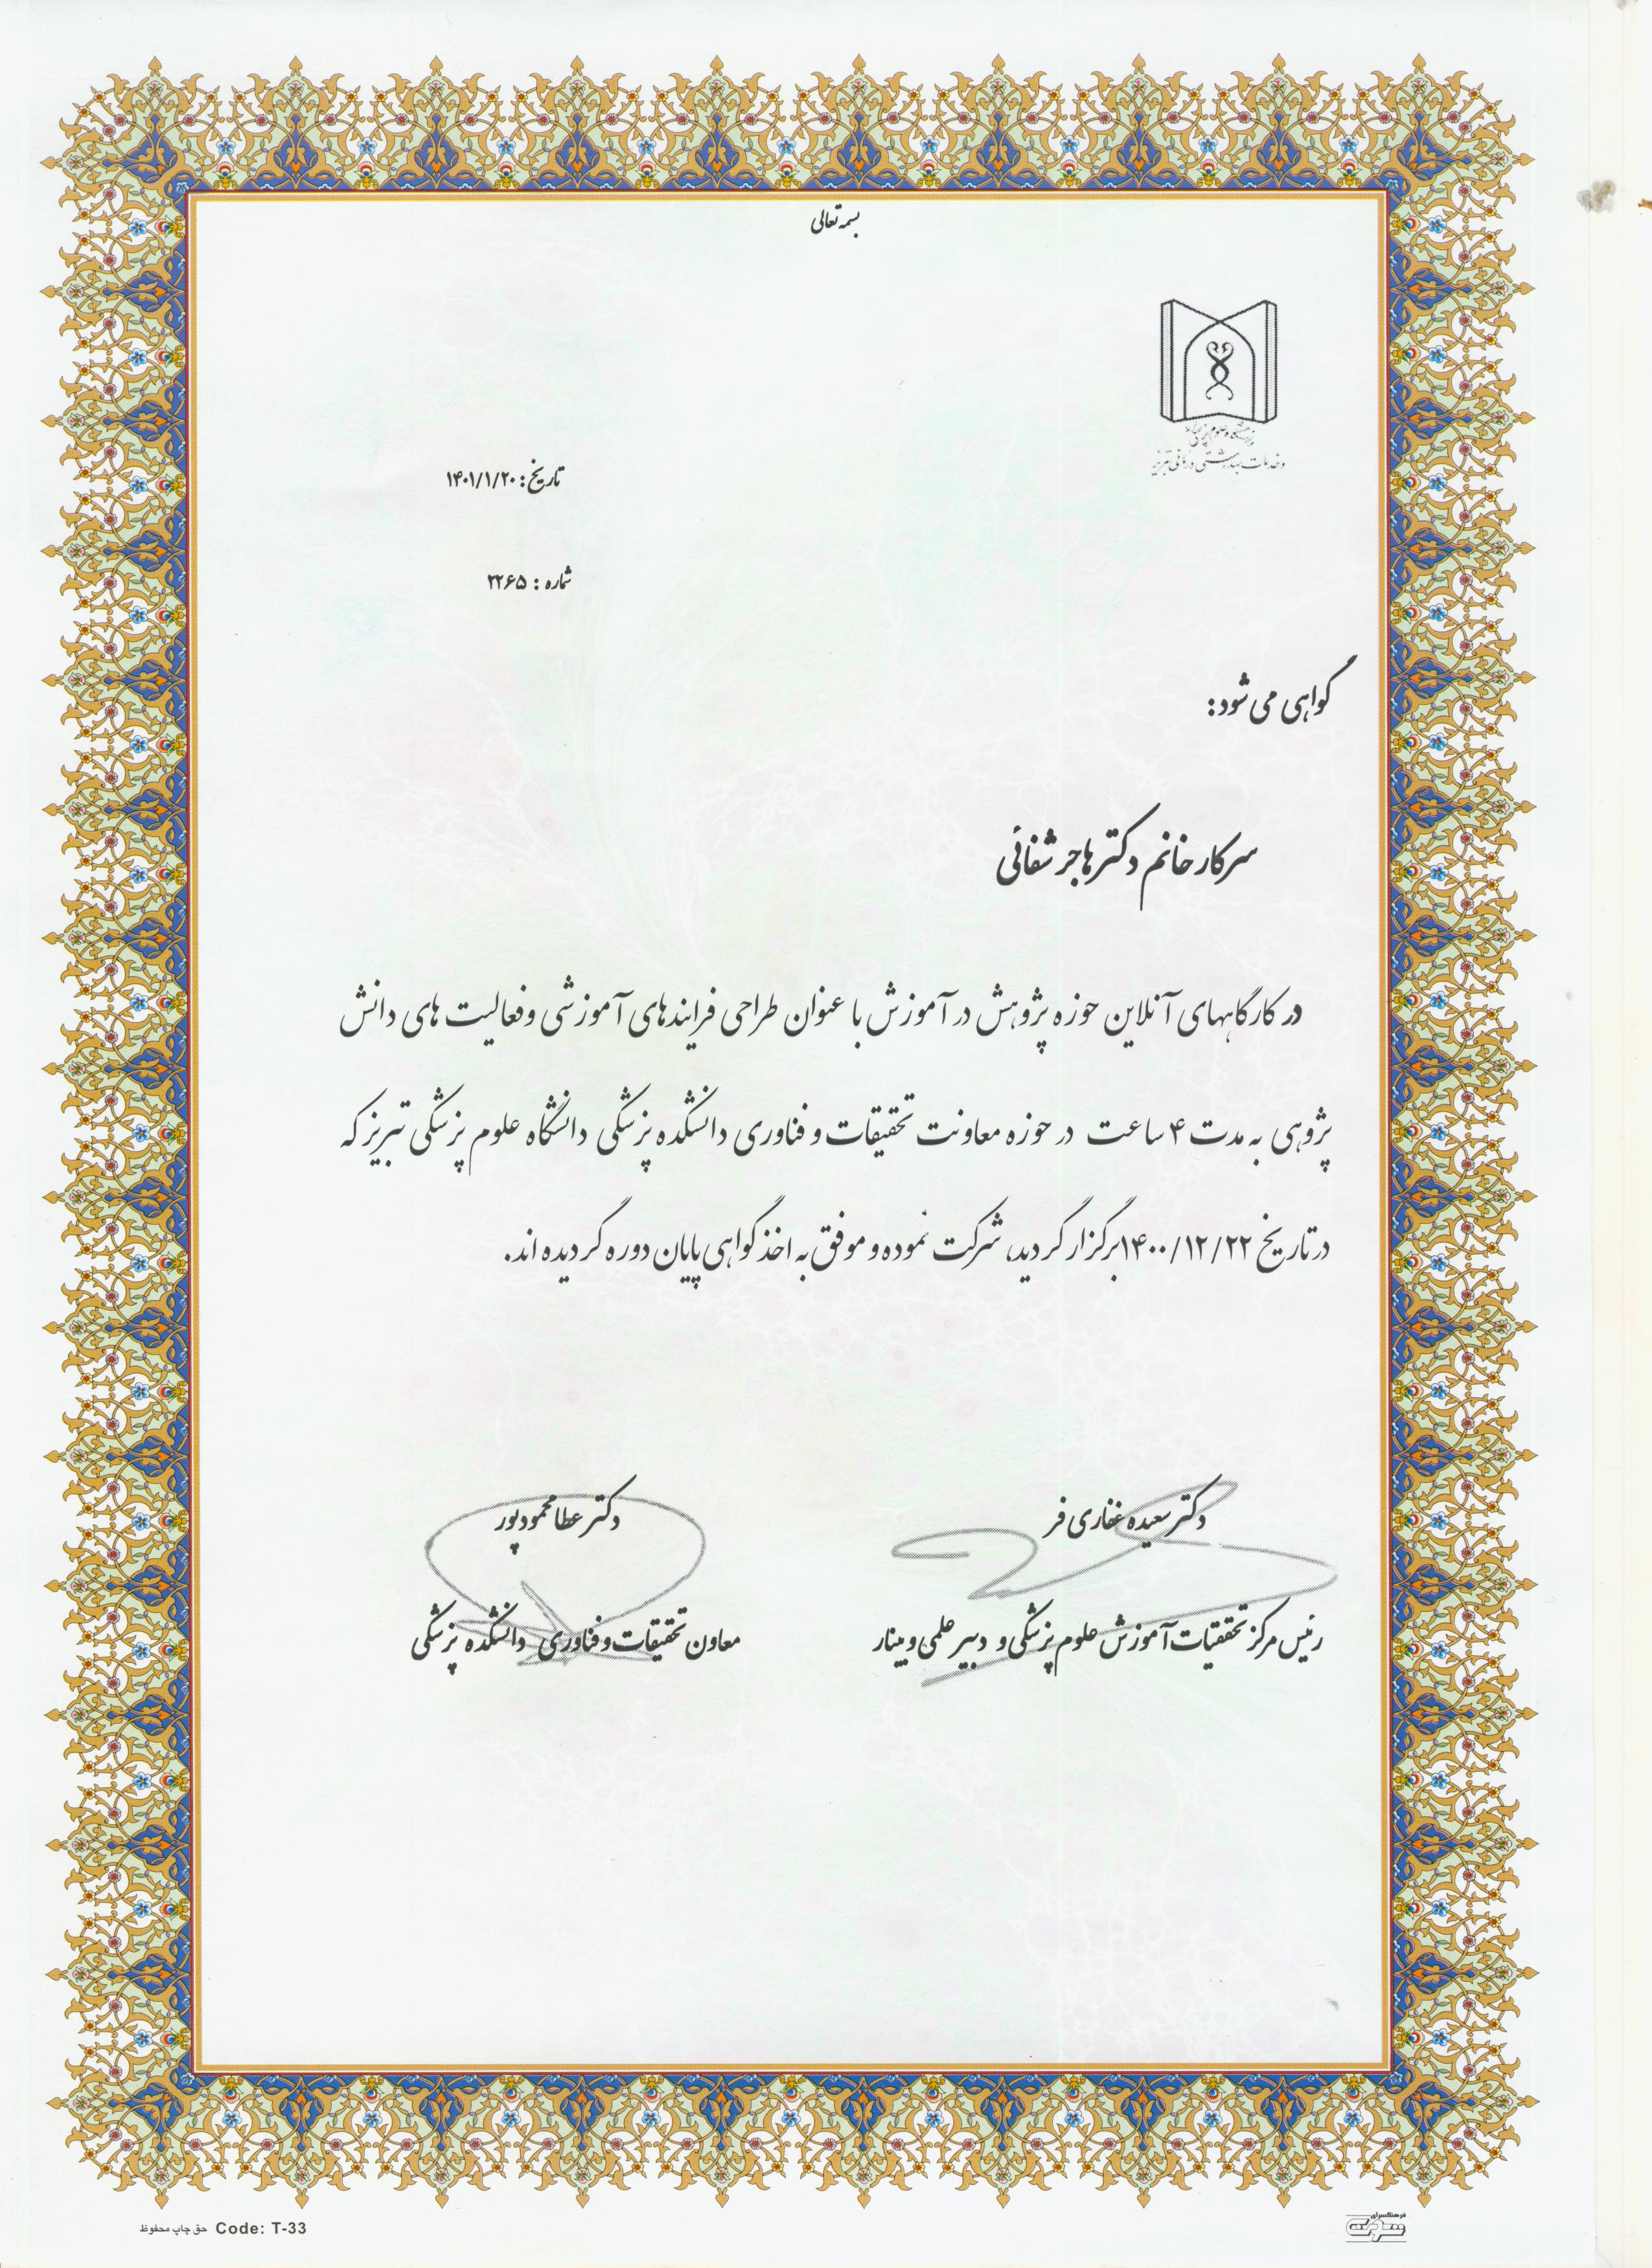 بسمه تعالی
و خدمات بهداشتی درمانی تبریز
تاریخ: ۱۴۰۱/۱/۲۰
شماره: ۲۲۶۵
گواهی می شود:
سرکار خانم دکتر هاجر شفائی
در کارگاههای آنلاین حوزه پژوهش در آموزش با عنوان طراحی فرایندهای آموزشی و فعالیت های دانش
پژوهی به مدت ۴ ساعت در حوزه معاونت تحقیقات و فناوری دانشکده پزشکی دانشگاه علوم پزشکی تبریز که
در تاریخ ۱۴۰۰/۱۲/۲۲ برگزار گردید، شرکت نموده و موفق به اخذ گواهی پایان دوره گردیده اند.
دکتر سعیده غفاری فر
رئیس مرکز تحقیقات آموزش علوم پزشکی و دبیر علمی وبینار
دکتر عطا محمودپور
معاون تحقیقات و فناوری دانشکده پزشکی
حق چاپ محفوظ Code: T-33
فرهنگسرای